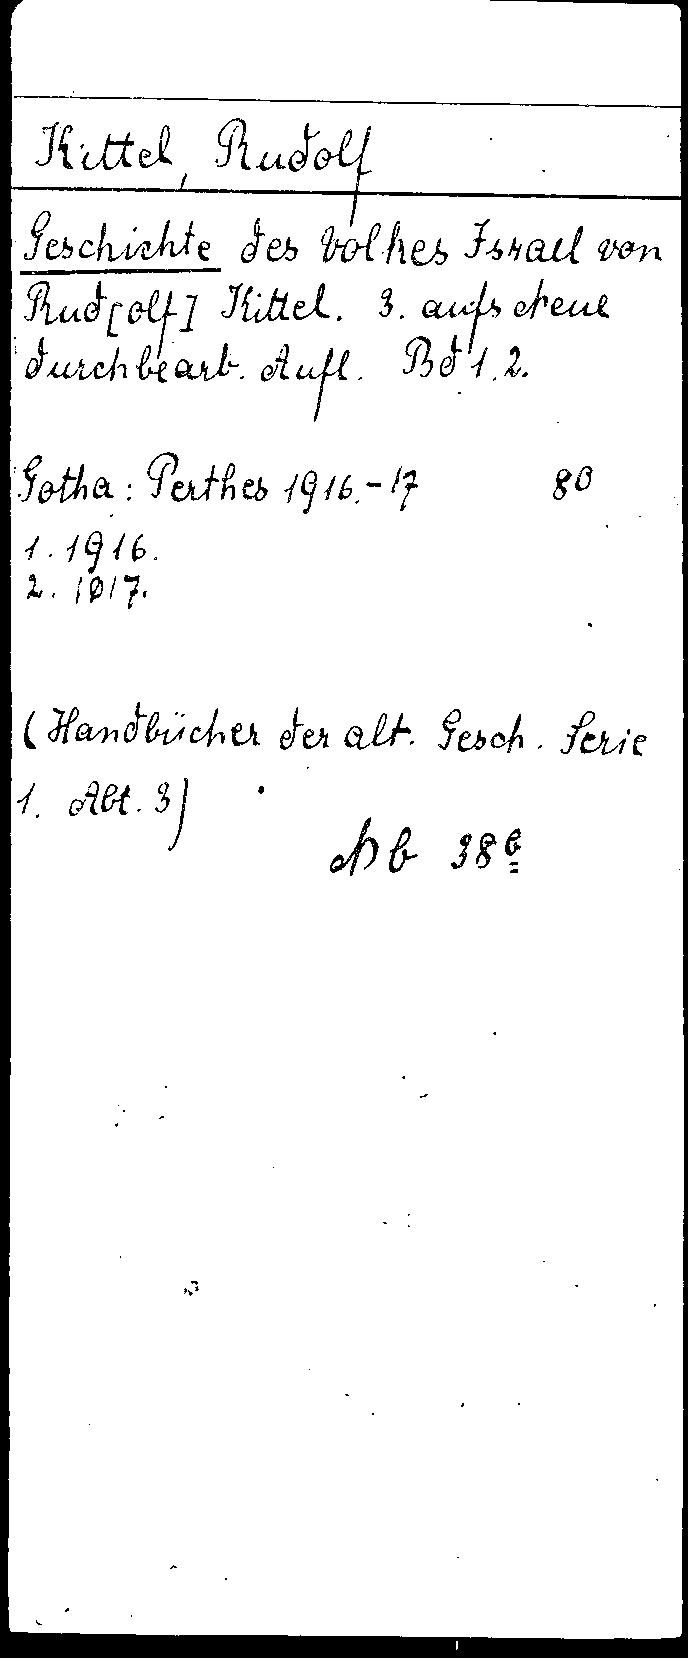 Kittel, Rudolf
Geschichte des Volkes Israel von
Rud[olf] Kittel. 3. aufs Neue
durchbearb. Aufl. Bd 1.2.
Gotha: Perthes 1916.-17 80
1. 1916.
2. 1917.
(Handbücher der alt. Gesch. Serie
1. Abt. 3)
Nb 38b